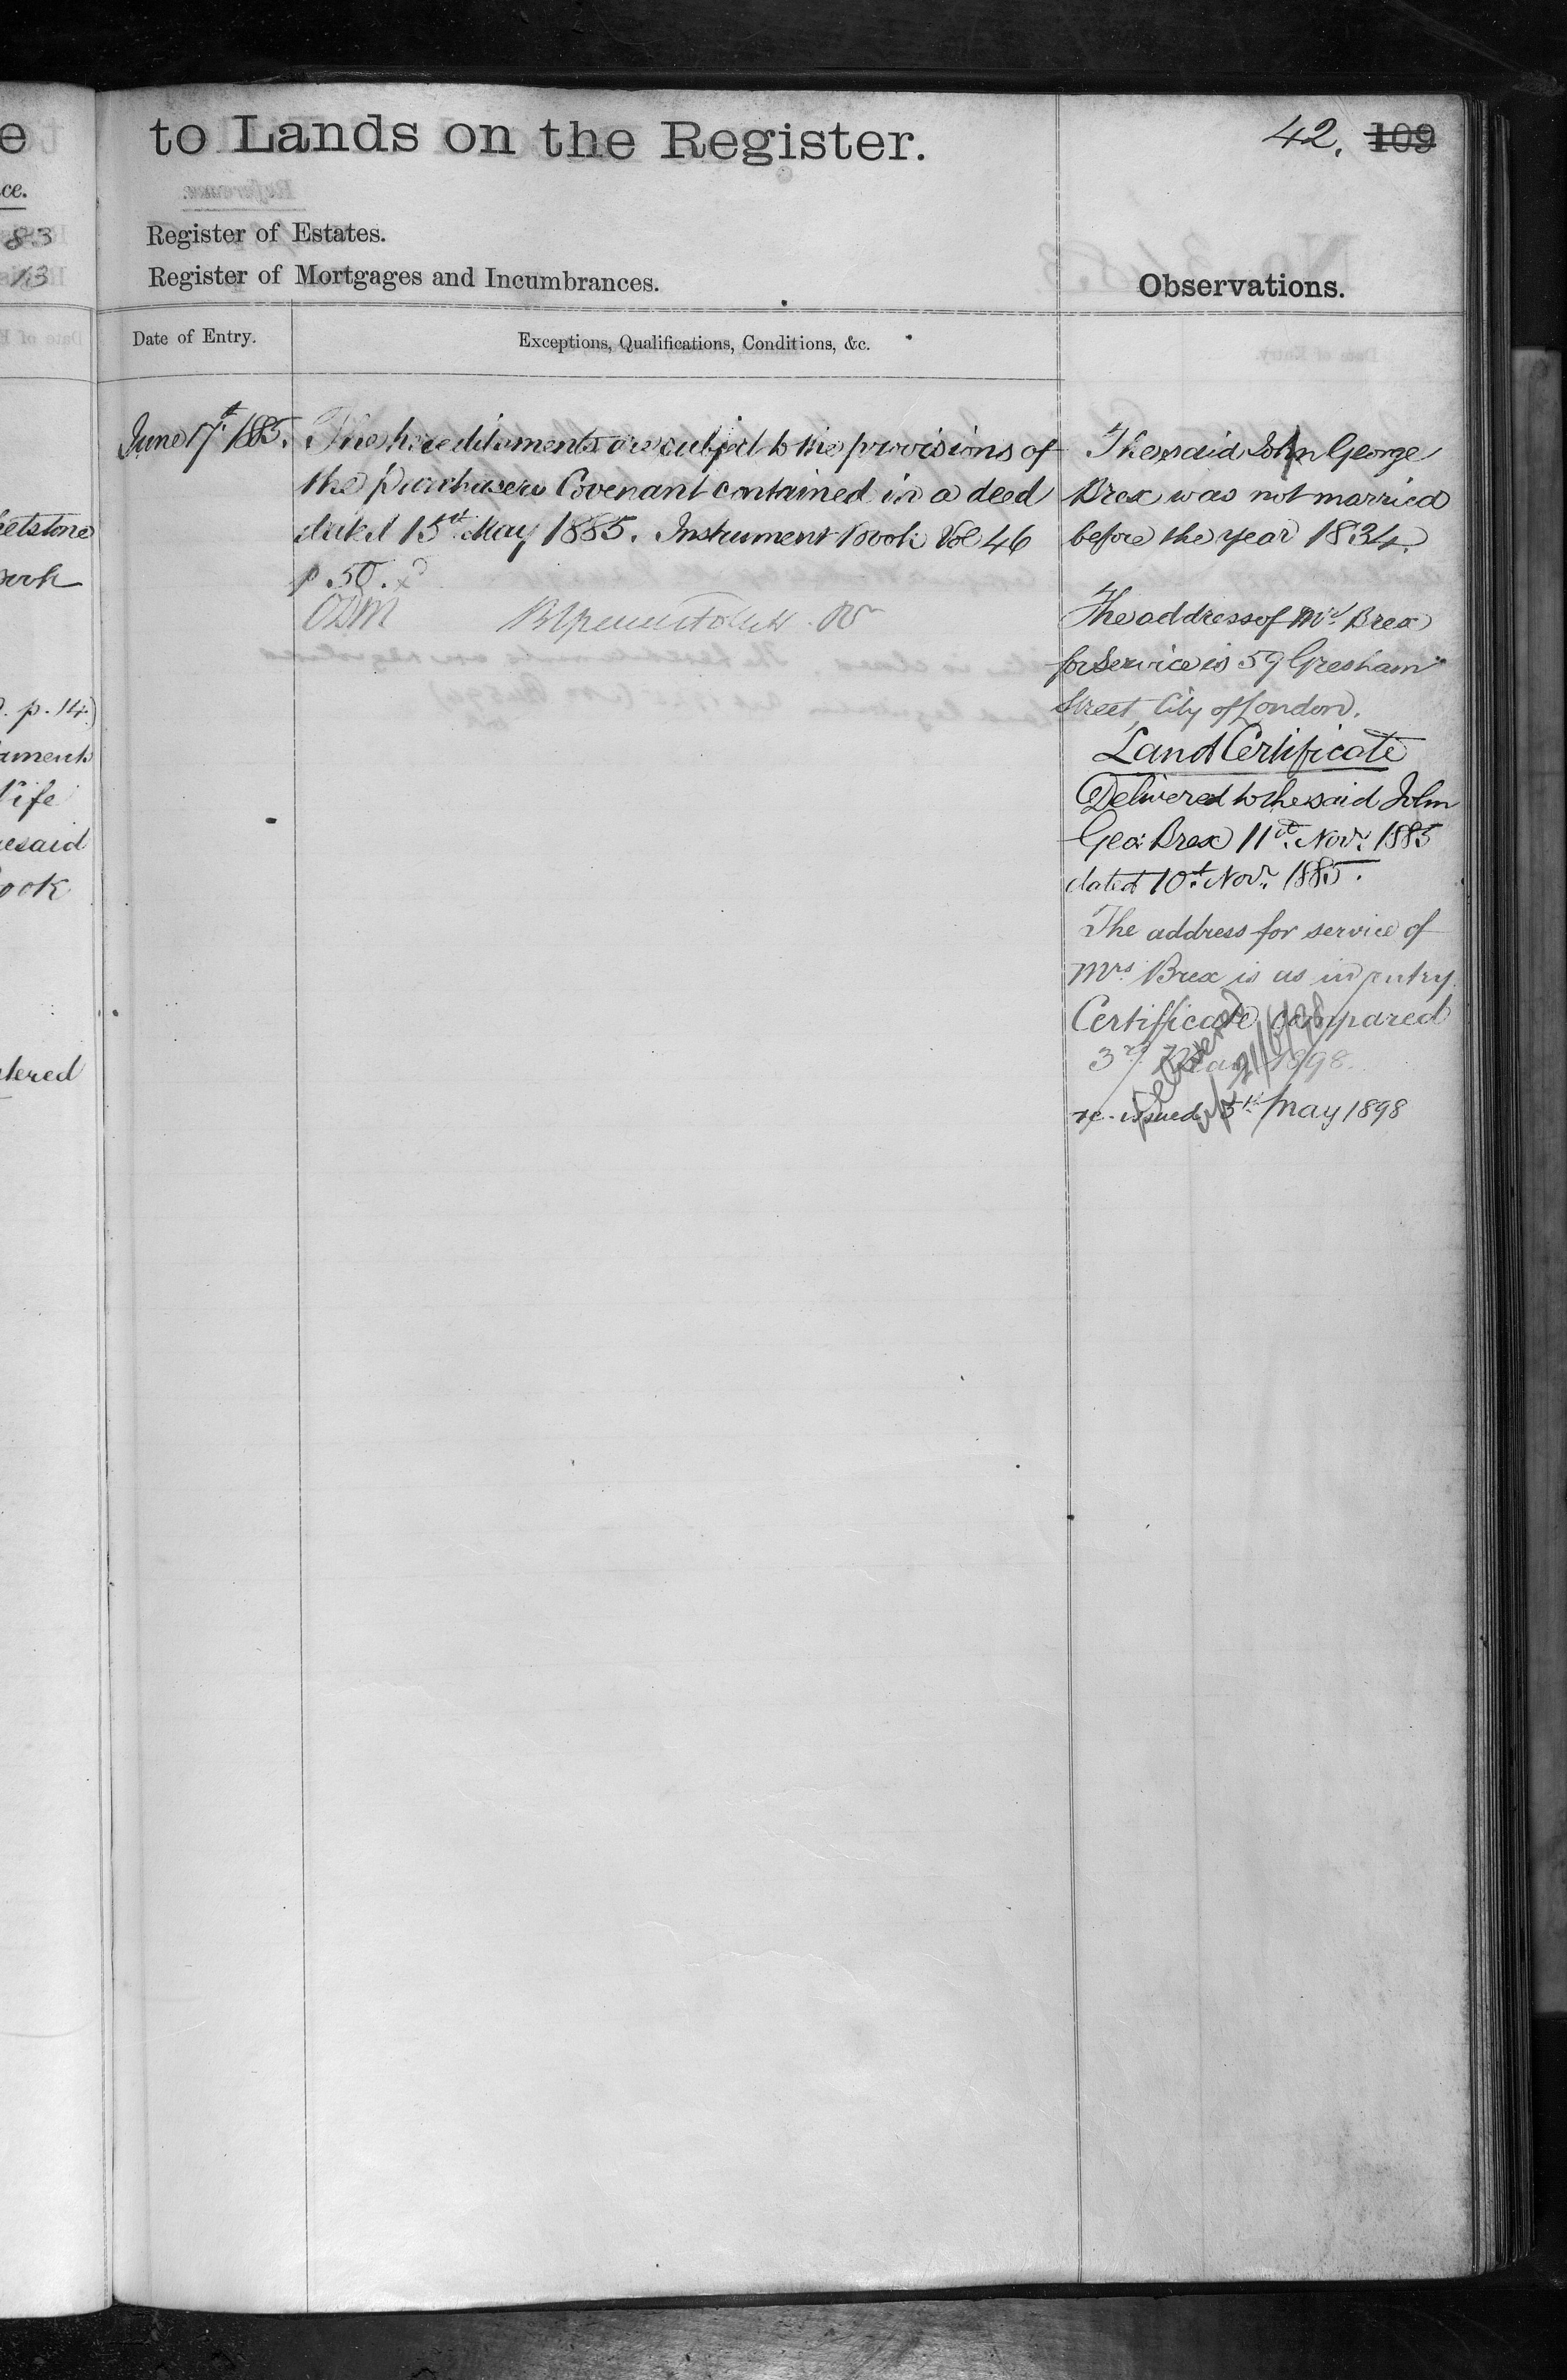 e
ce.
83
13
hetstone
p. 14.)
Wife
said
ook
tered
to Lands on the Register.
42. 109
Register of Estates.
Register of Mortgages and Incumbrances.
Observations.
Date of Entry.
Exceptions, Qualifications, Conditions, &c.
June 17th 1885.
The hereditaments are subject to the provisions of
the purchasers Covenant contained in a deed
dated 15th May 1885. Instrument Book Vol 46
p. 50.
ODM
The said John George
Brex was not married
before the year 1834.
The address of Mr. Brex
for Service is 59 Gresham
Street, City of London.
Land Certificate
Delivered to the said John
Geo: Brex 11th. Novr. 1885
dated 10th. Novr. 1885.
The address for service of
Mrs. Brex is as in entry
Certificate compared
3rd May 1898.
re-issued 5th May 1898
Delivered
21/6/98